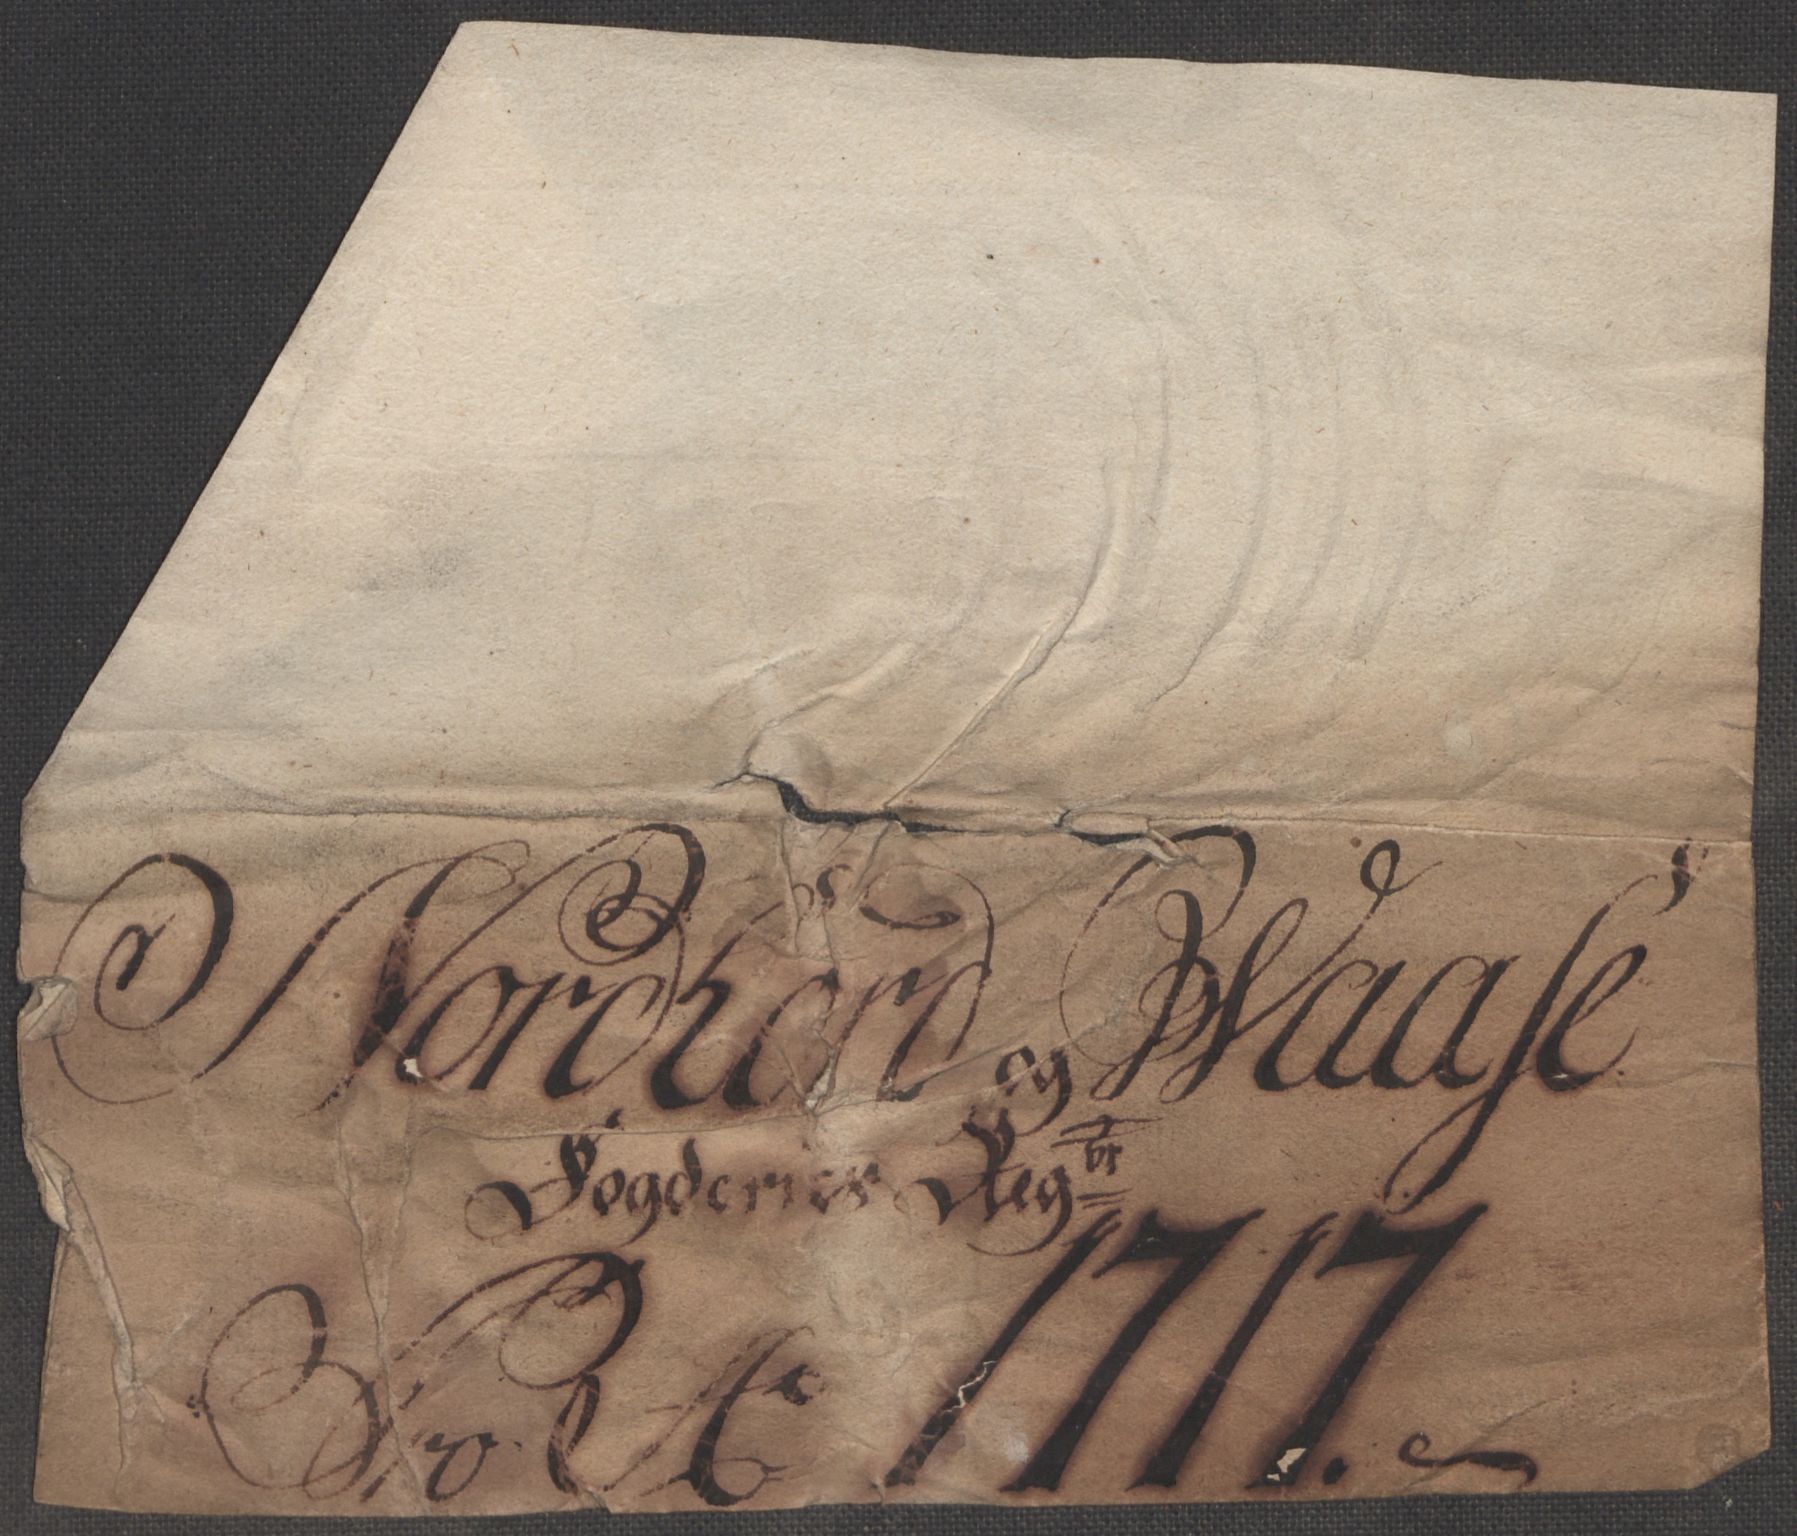 Nordhord og Waase
Fogderies Reg^br
Pro Ao 1717.